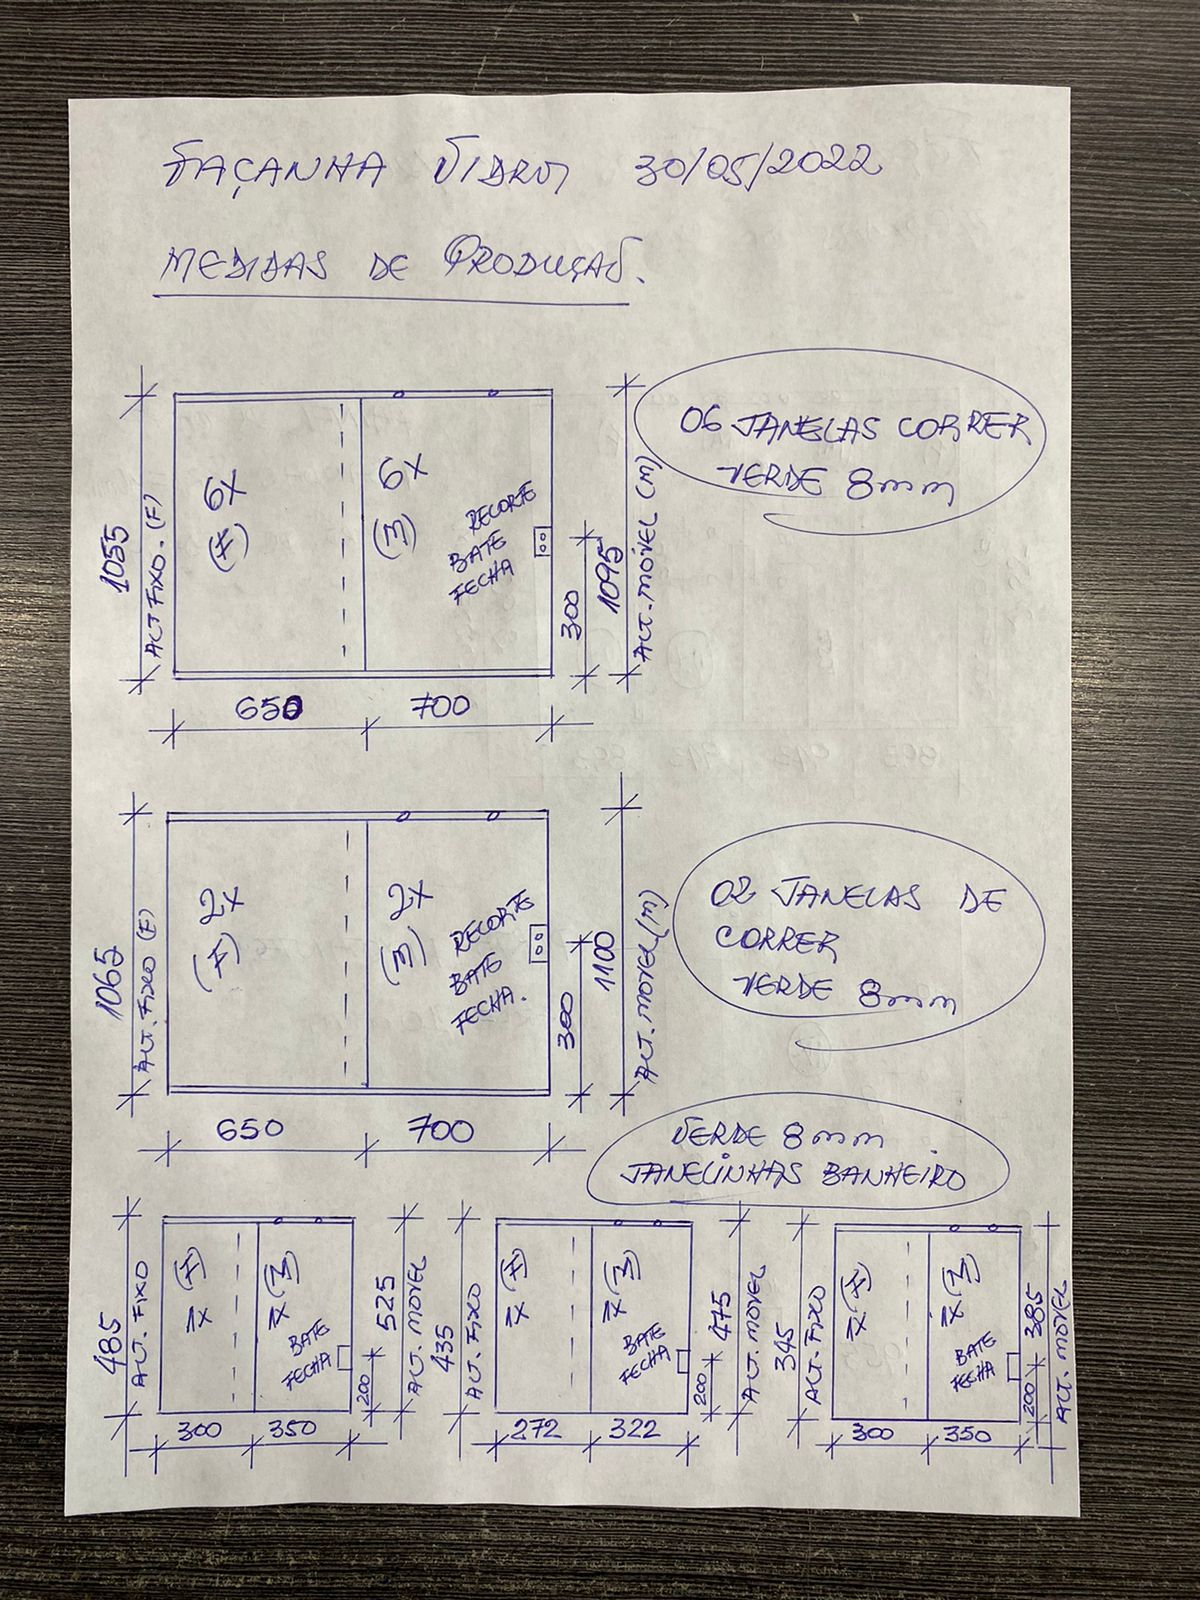 FAÇANHA VIDROS 30/05/2022
MEDIDAS DE PRODUÇÃO.
06 JANELAS CORRER
VERDE 8mm
1055
ALT FIXO. (F)
6X
(F)
6X
(M)
RECORTE
BATE
FECHA
300
1095
ALT. MÓVEL (M)
650
700
02 JANELAS DE
CORRER
VERDE 8mm
1065
ALT. FIXO (F)
2X
(F)
2X
(M)
RECORTE
BATE
FECHA.
300
1100
ALT. MOVEL (M)
650
700
VERDE 8mm
JANELINHAS BANHEIRO
485
ALT. FIXO
1X (F)
1X (M)
BATE
FECHA
200
525
ALT. MOVEL
300
350
435
ALT. FIXO
1X (F)
1X (M)
BATE
FECHA
200
475
ALT. MOVEL
272
322
345
ALT. FIXO
1X (F)
1X (M)
BATE
FECHA
200
385
ALT. MOVEL
300
350